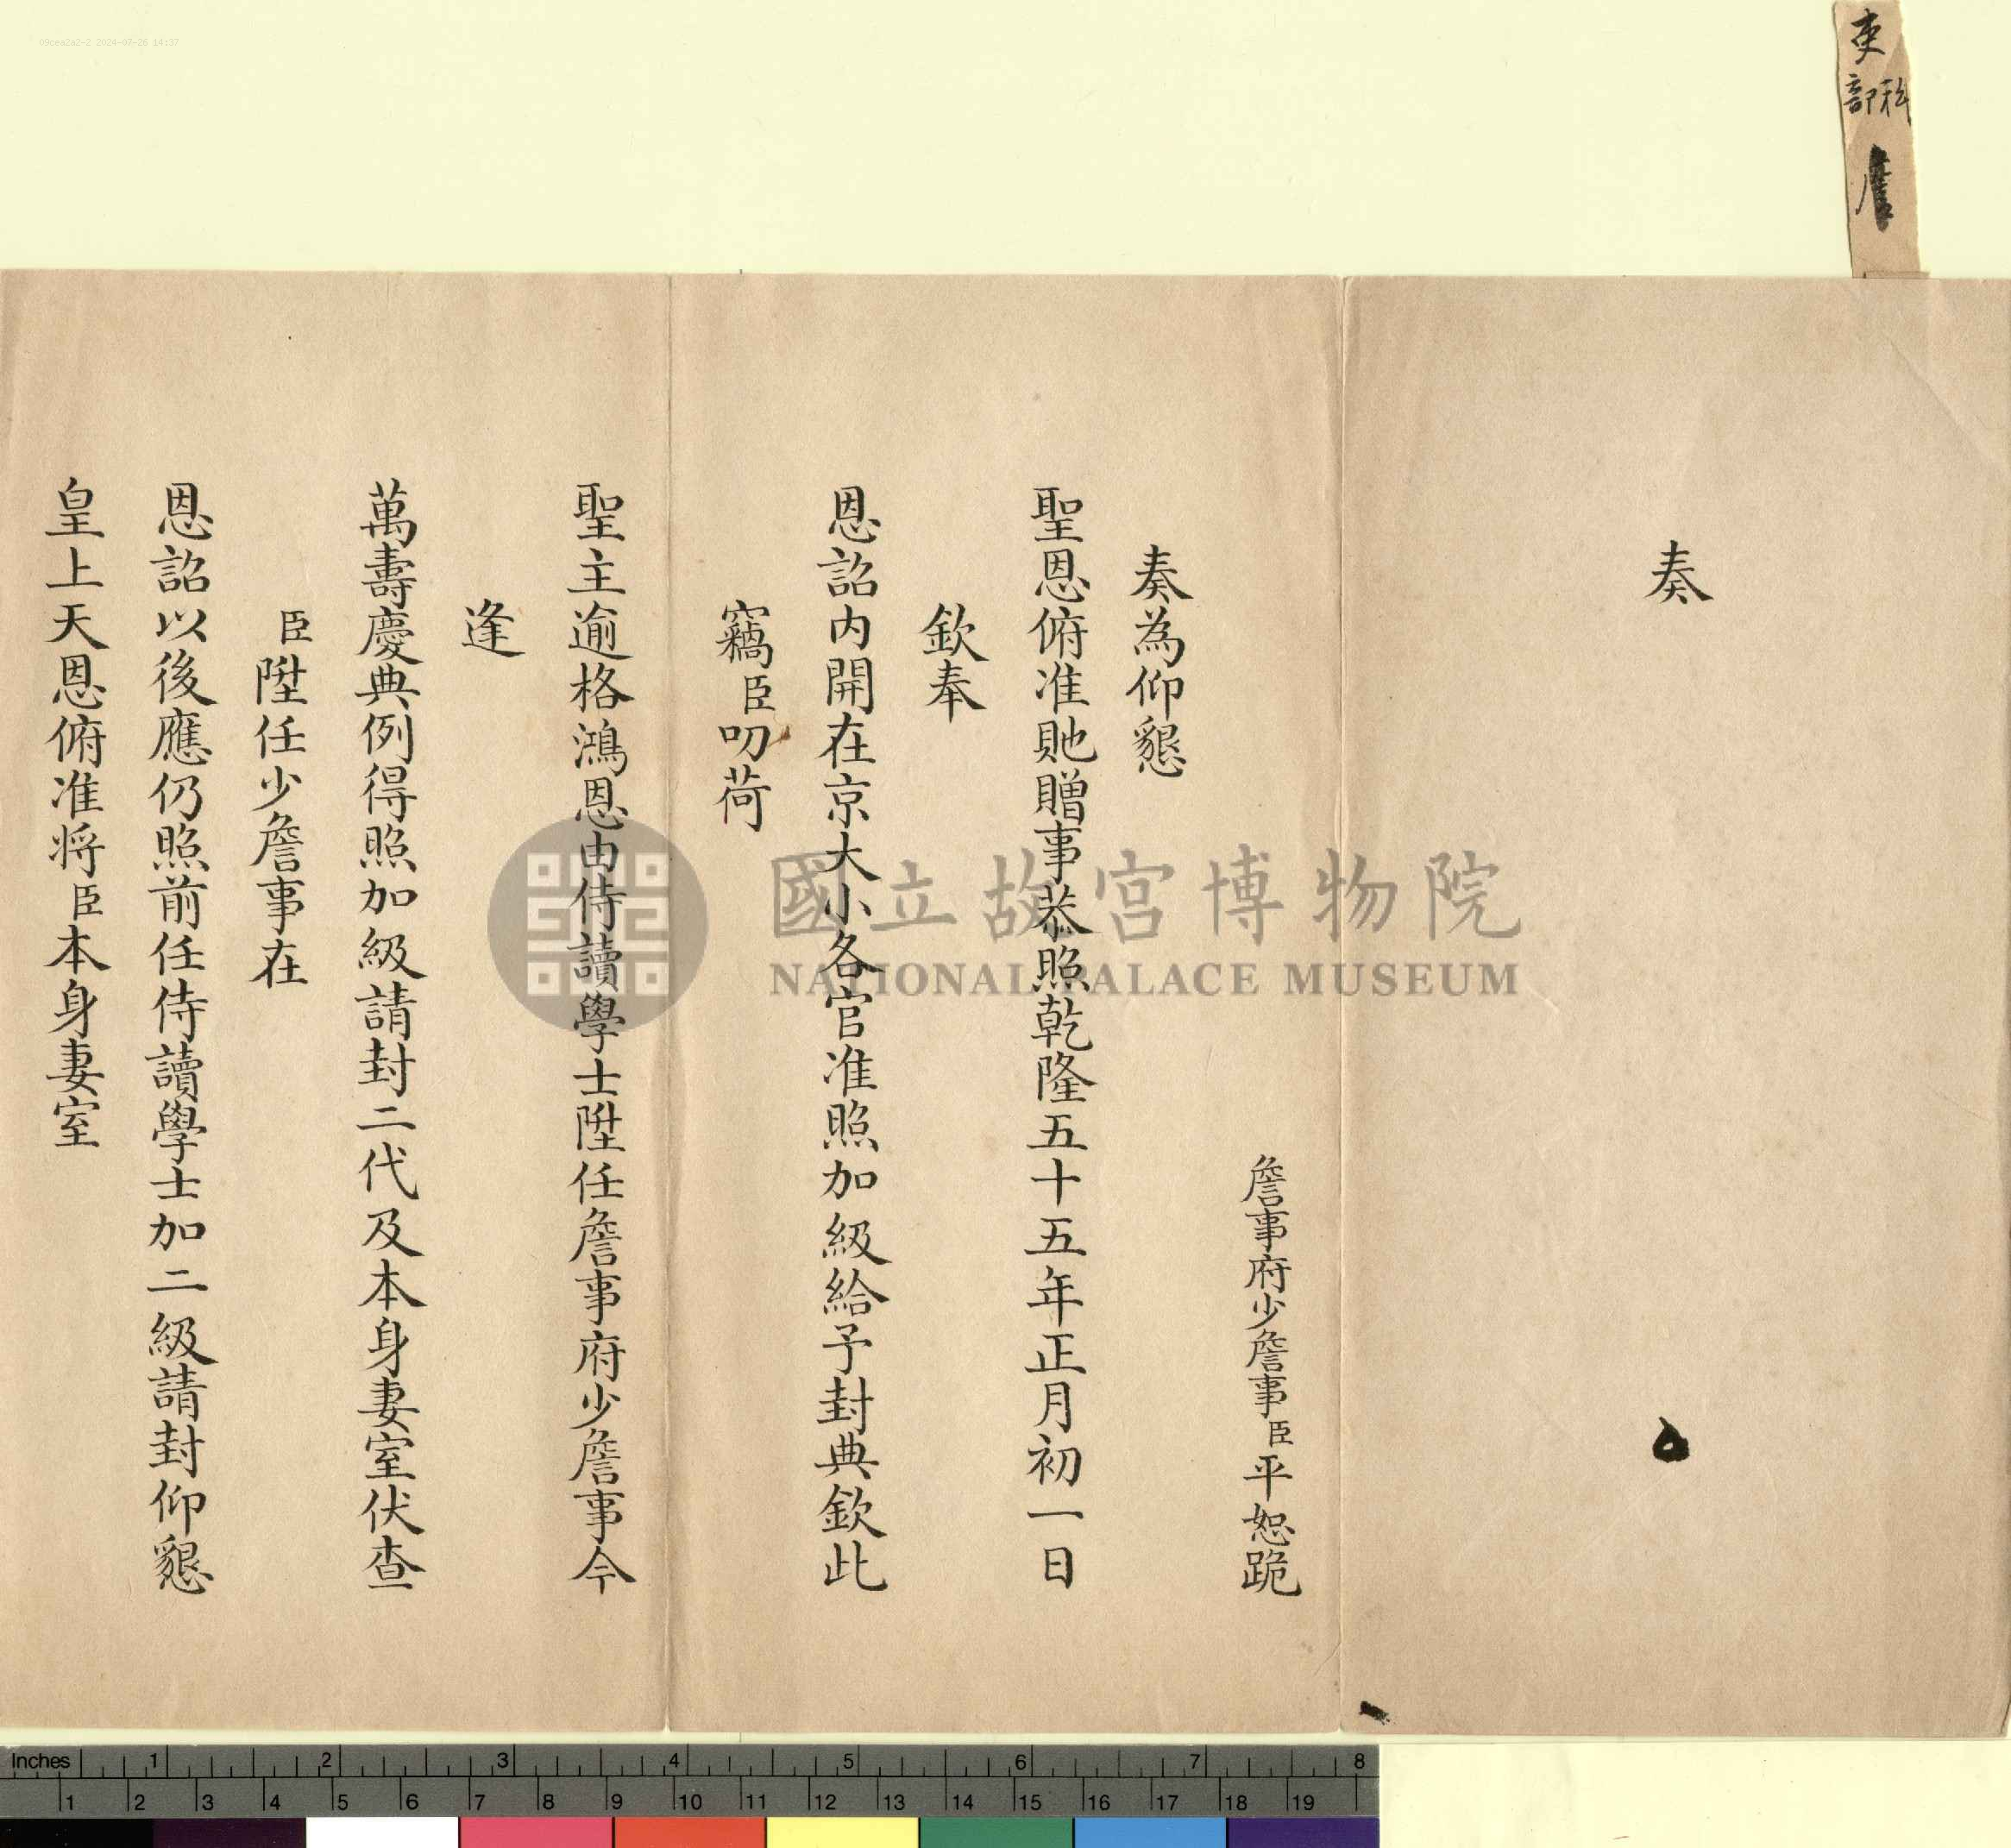 吏科
部
奏
詹事府少詹事臣平恕跪
奏為仰懇
聖恩俯准貤贈事恭照乾隆五十五年正月初一日
欽奉
恩詔内開在京大小各官准照加級給予封典欽此
竊臣叨荷
聖主逾格鴻恩由侍讀學士陞任詹事府少詹事今
逢
萬壽慶典例得照加級請封二代及本身妻室伏查
臣陞任少詹事在
恩詔以後應仍照前任侍讀學士加二級請封仰懇
皇上天恩俯准将臣本身妻室
國立故宮博物院
NATIONAL PALACE MUSEUM
09cea2a2-2 2024-07-26 14:37
Inches 1 2 3 4 5 6 7 8
1 2 3 4 5 6 7 8 9 10 11 12 13 14 15 16 17 18 19